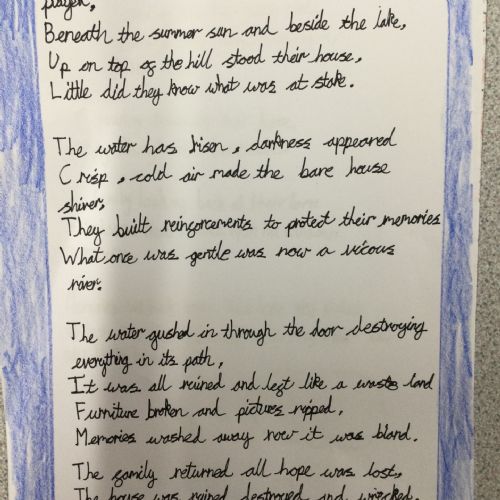 played,
Beneath the summer sun and beside the lake,
Up on top of the hill stood their house,
Little did they know what was at stake.
The water has risen, darkness appeared
Crisp, cold air made the bare house
shiver,
They built reinforcements to protect their memories
What once was gentle was now a vicous
river.
The water gushed in through the door destroying
everything in its path,
It was all ruined and left like a waste land
Furniture broken and pictures ripped,
Memories washed away now it was bland.
The family returned all hope was lost,
The house was ruined destroyed and wrecked.